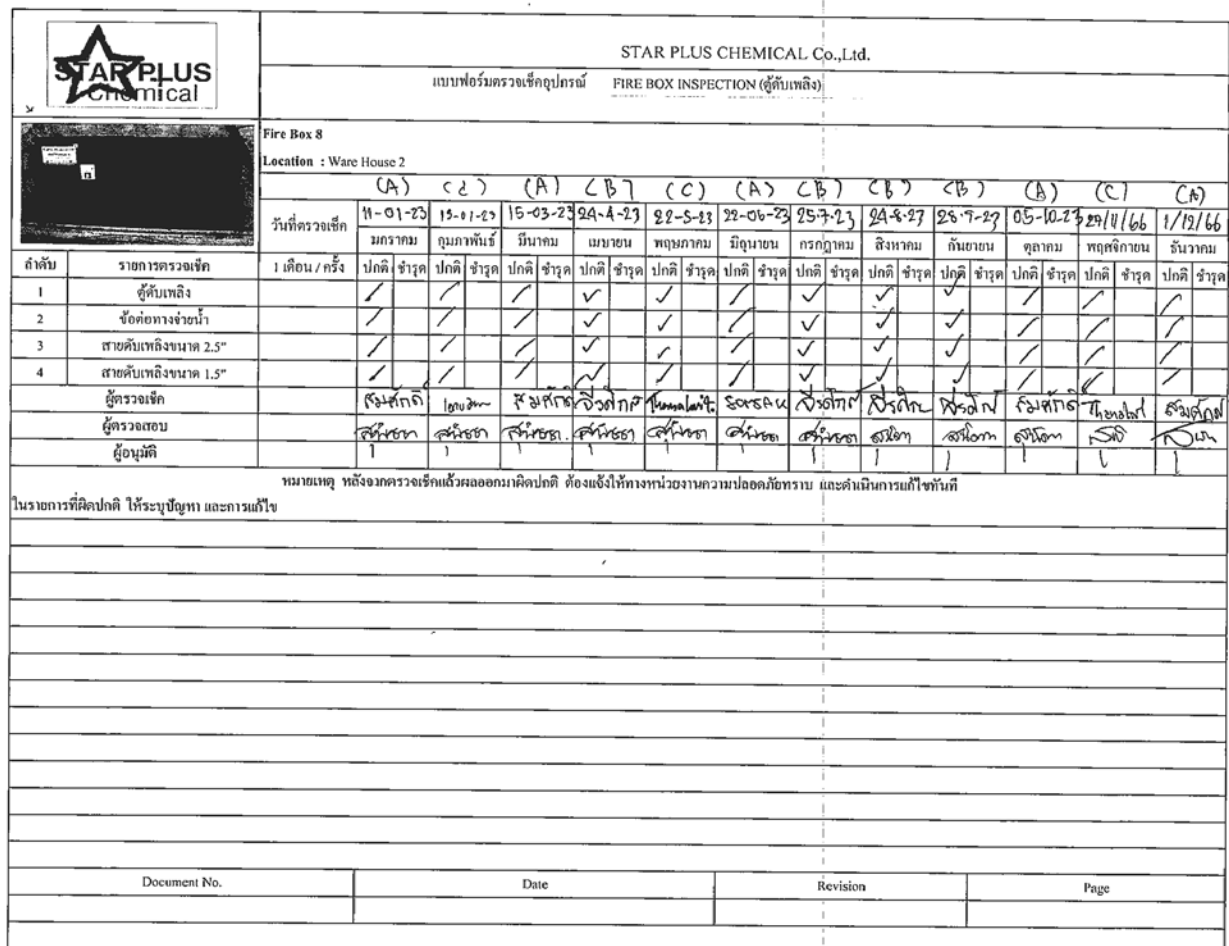 STAR PLUS
Chemical
STAR PLUS CHEMICAL Co.,Ltd.
แบบฟอร์มตรวจเช็คอุปกรณ์ FIRE BOX INSPECTION (ตู้ดับเพลิง)
Fire Box 8
Location : Ware House 2
(A) (A) (B) (C) (A) (B) (B) (B) (A) (C) (A)
วันที่ตรวจเช็ค 11-01-23 15-03-23 24-4-23 22-5-23 22-06-23 25.7.23 05-10-23 1/12/66
มกราคม กุมภาพันธ์ มีนาคม เมษายน พฤษภาคม มิถุนายน กรกฎาคม สิงหาคม กันยายน ตุลาคม พฤศจิกายน ธันวาคม
ลำดับ รายการตรวจเช็ค 1 เดือน / ครั้ง ปกติ ชำรุด ปกติ ชำรุด ปกติ ชำรุด ปกติ ชำรุด ปกติ ชำรุด ปกติ ชำรุด ปกติ ชำรุด ปกติ ชำรุด ปกติ ชำรุด ปกติ ชำรุด ปกติ ชำรุด ปกติ ชำรุด
1 ตู้ดับเพลิง
2 ข้อต่อทางจ่ายน้ำ
3 สายดับเพลิงขนาด 2.5"
4 สายดับเพลิงขนาด 1.5"
ผู้ตรวจเช็ค สมศักดิ์ สมศักดิ์ สมศักดิ์ สมศักดิ์
ผู้ตรวจสอบ
ผู้อนุมัติ
หมายเหตุ หลังจากตรวจเช็คแล้วผลออกมาผิดปกติ ต้องแจ้งให้ทางหน่วยงานความปลอดภัยทราบ และดำเนินการแก้ไขทันที
ในรายการที่ผิดปกติ ให้ระบุปัญหา และการแก้ไข
Document No. Date Revision Page